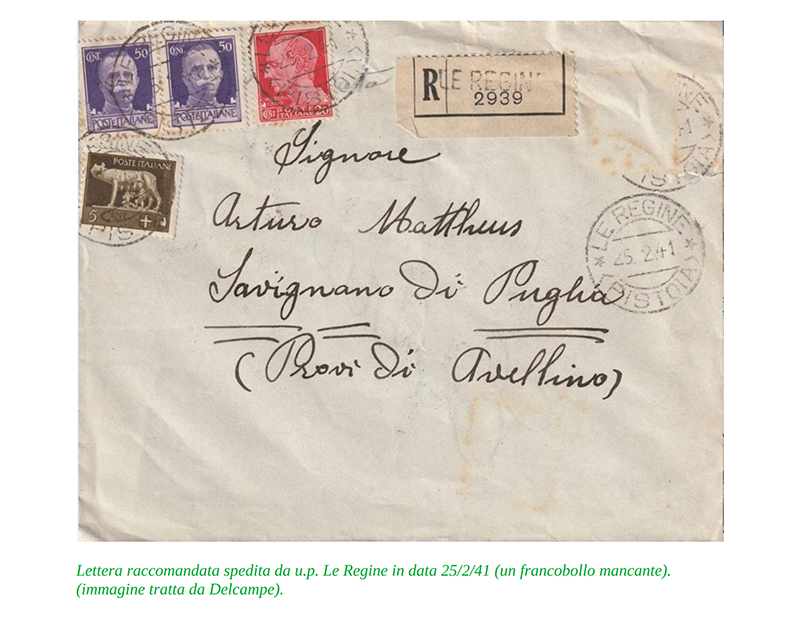 CENT. 50
POSTE ITALIANE
CENT. 50
POSTE ITALIANE
POSTE ITALIANE
5 CENT
R LE REGINE
2939
Signore
Arturo Mattheus
Savignano di Puglia
(Provi di Avellino)
LE REGINE
25.2.41
(PISTOIA)
Lettera raccomandata spedita da u.p. Le Regine in data 25/2/41 (un francobollo mancante).
(immagine tratta da Delcampe).